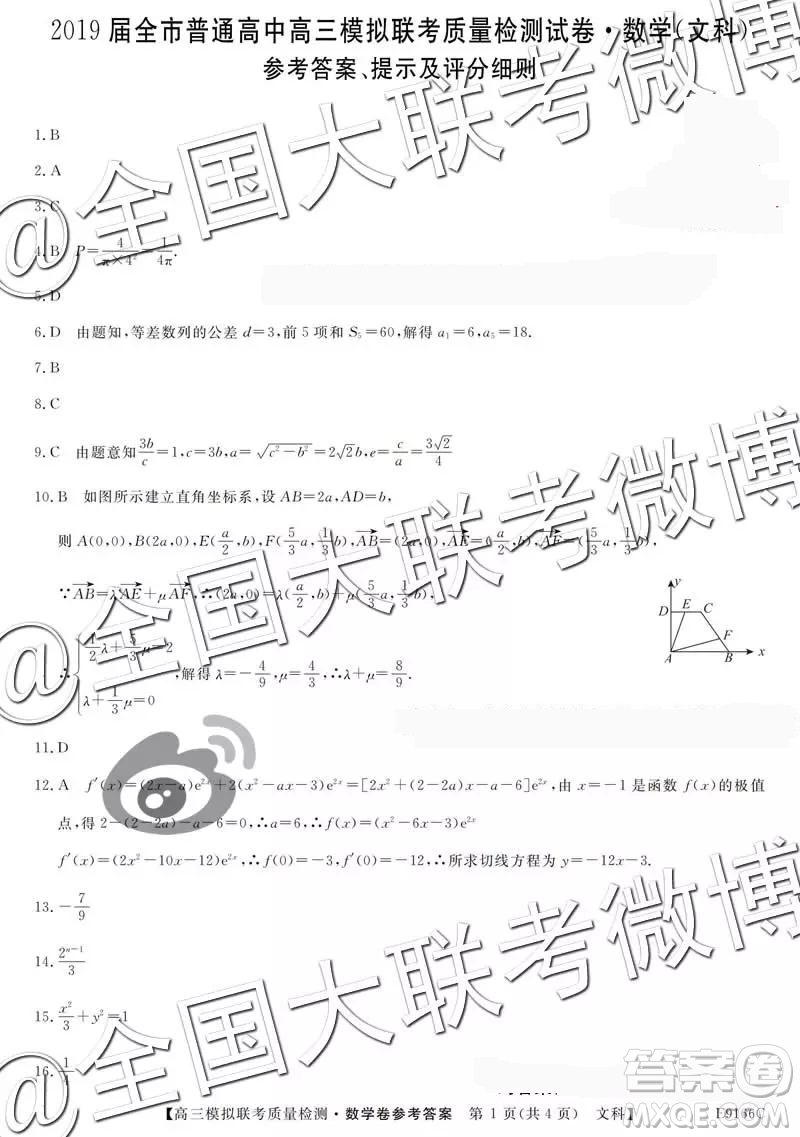 2019届全市普通高中高三模拟联考质量检测试卷·数学(文科)
参考答案、提示及评分细则
1. B
2. A
3. C
4. B P=4/(π×4²)=1/(4π).
5. D
6. D 由题知,等差数列的公差 d=3,前 5 项和 S₅=60,解得 a₁=6,a₅=18.
7. B
8. C
9. C 由题意知 3b/c=1,c=3b,a=√(c²-b²)=2√2b,e=c/a=3√2/4
10. B 如图所示建立直角坐标系,设 AB=2a,AD=b,
则 A(0,0),B(2a,0),E(a/2,b),F(5/3a,1/3b),AB=(2a,0),AE=(a/2,b),AF=(5/3a,1/3b),
∵AB=λAE+μAF,∴(2a,0)=λ(a/2,b)+μ(5/3a,1/3b),
y
D E C
F
A B x
∴{1/2λ+5/3μ=2
λ+1/3μ=0
,解得 λ=-4/9,μ=4/3,∴λ+μ=8/9.
11. D
12. A f′(x)=(2x-a)e²ˣ+2(x²-ax-3)e²ˣ=[2x²+(2-2a)x-a-6]e²ˣ,由 x=-1 是函数 f(x)的极值
点,得 2-(2-2a)-a-6=0,∴a=6,∴f(x)=(x²-6x-3)e²ˣ
f′(x)=(2x²-10x-12)e²ˣ,∴f(0)=-3,f′(0)=-12,∴所求切线方程为 y=-12x-3.
13. -7/9
14. 2ⁿ⁻¹/3
15. x²/3+y²=1
16.
【高三模拟联考质量检测·数学卷参考答案 第 1 页(共 4 页) 文科】 E9166C
@全国大联考微博
@全国大联考微博
@全国大联考微博
答案卷